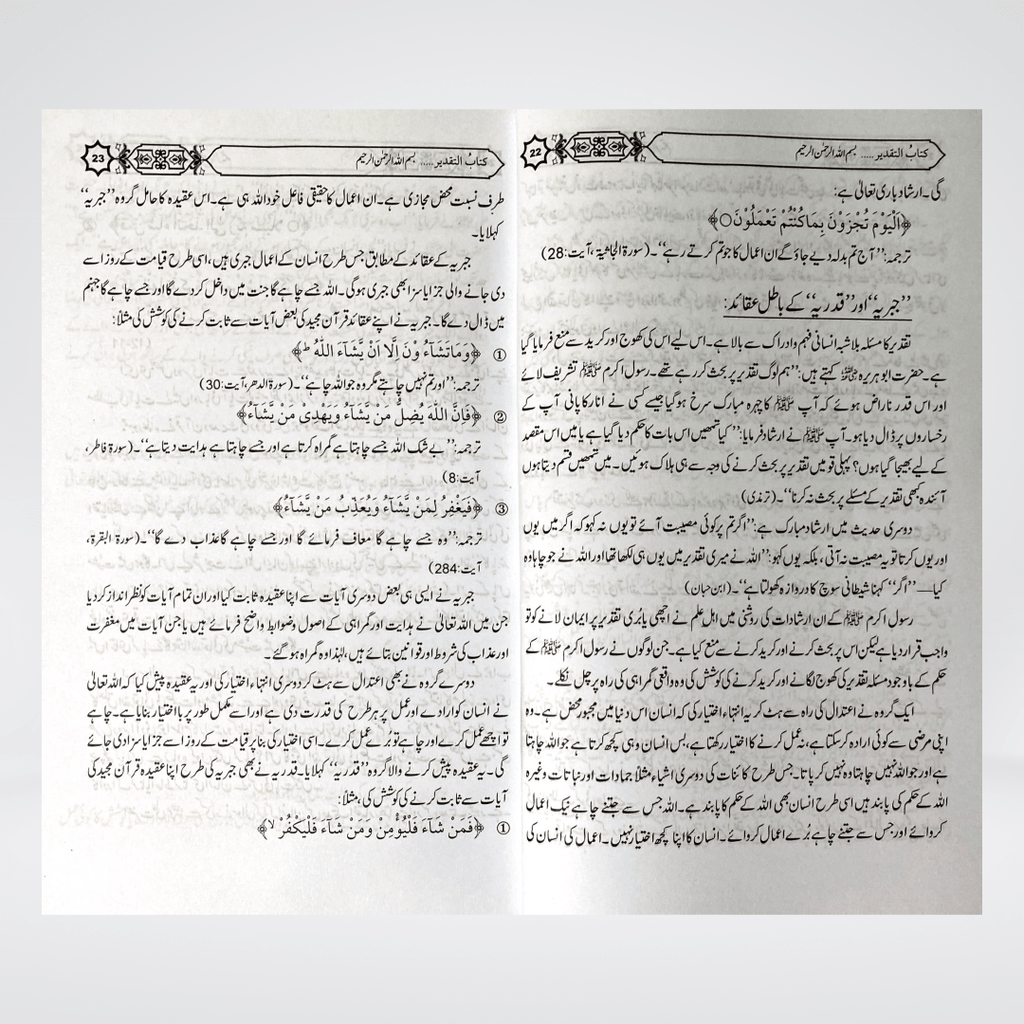 کتاب التقدیر ..... بسم اللہ الرحمٰن الرحیم
22
گی۔ ارشاد باری تعالیٰ ہے:
﴿اَلْیَوْمَ تُجْزَوْنَ بِمَا کُنْتُمْ تَعْمَلُوْنَ○﴾
ترجمہ: ”آج تم بدلہ دیے جاؤ گے ان اعمال کا جو تم کرتے رہے“۔ (سورۃ الجاثیۃ، آیت:28)
”جبریہ“ اور ”قدریہ“ کے باطل عقائد:
تقدیر کا مسئلہ بلاشبہ انسانی فہم و ادراک سے بالا ہے۔ اس لیے اس کی کھوج اور کرید سے منع فرمایا گیا
ہے۔ حضرت ابوہریرہ رضی اللہ عنہ کہتے ہیں: ”ہم لوگ تقدیر پر بحث کر رہے تھے۔ رسول اکرم ﷺ تشریف لائے
اور اس قدر ناراض ہوئے کہ آپ ﷺ کا چہرہ مبارک سرخ ہوگیا جیسے کسی نے انار کا پانی آپ کے
رخساروں پر ڈال دیا ہو۔ آپ ﷺ نے ارشاد فرمایا: ”کیا تمھیں اس بات کا حکم دیا گیا ہے یا میں اس مقصد
کے لیے بھیجا گیا ہوں؟ پہلی قومیں تقدیر پر بحث کرنے کی وجہ سے ہی ہلاک ہوئیں۔ میں تمھیں قسم دیتا ہوں
آئندہ کبھی تقدیر کے مسئلے پر بحث نہ کرنا“۔ (ترمذی)
دوسری حدیث میں ارشاد مبارک ہے: ”اگر تم پر کوئی مصیبت آئے تو یوں نہ کہو کہ اگر میں یوں
اور یوں کرتا تو یہ مصیبت نہ آتی، بلکہ یوں کہو: ”اللہ نے میری تقدیر میں یوں ہی لکھا تھا اور اللہ نے جو چاہا وہ
کیا — ”اگر“ کہنا شیطانی سوچ کا دروازہ کھولتا ہے“۔ (ابن حبان)
رسول اکرم ﷺ کے ان ارشادات کی روشنی میں اہل علم نے اچھی یا بُری تقدیر پر ایمان لانے کو تو
واجب قرار دیا ہے لیکن اس پر بحث کرنے اور کرید کرنے سے منع کیا ہے۔ جن لوگوں نے رسول اکرم ﷺ کے
حکم کے باوجود مسئلہ تقدیر کی کھوج لگانے اور کرید کرنے کی کوشش کی وہ واقعی گمراہی کی راہ پر چل نکلے۔
ایک گروہ نے اعتدال کی راہ سے ہٹ کر یہ انتہاء اختیار کی کہ انسان اس دنیا میں مجبور محض ہے۔ وہ
اپنی مرضی سے کوئی ارادہ کر سکتا ہے، نہ عمل کرنے کا اختیار رکھتا ہے، بس انسان وہی کچھ کرتا ہے جو اللہ چاہتا
ہے اور جو اللہ نہیں چاہتا وہ نہیں کر پاتا۔ جس طرح کائنات کی دوسری اشیاء مثلاً جمادات اور نباتات وغیرہ
اللہ کے حکم کی پابند ہیں اسی طرح انسان بھی اللہ کے حکم کا پابند ہے۔ اللہ جس سے جتنے چاہے نیک اعمال
کروائے اور جس سے جتنے چاہے بُرے اعمال کروائے۔ انسان کا اپنا کچھ اختیار نہیں۔ اعمال کی انسان کی
کتاب التقدیر ..... بسم اللہ الرحمٰن الرحیم
23
طرف نسبت محض مجازی ہے۔ ان اعمال کا حقیقی فاعل خود اللہ ہی ہے۔ اس عقیدہ کا حامل گروہ ”جبریہ“
کہلایا۔
جبریہ کے عقائد کے مطابق جس طرح انسان کے اعمال جبری ہیں، اسی طرح قیامت کے روز اسے
دی جانے والی جزا یا سزا بھی جبری ہوگی۔ اللہ جسے چاہے گا جنت میں داخل کر دے گا اور جسے چاہے گا جہنم
میں ڈال دے گا۔ جبریہ نے اپنے عقائد قرآن مجید کی بعض آیات سے ثابت کرنے کی کوشش کی مثلاً:
① ﴿وَمَا تَشَآءُ وْنَ اِلَّا اَنْ یَّشَآءَ اللّٰهُ ط﴾
ترجمہ: ”اور تم نہیں چاہتے مگر وہ جو اللہ چاہے“۔ (سورۃ الدھر، آیت:30)
② ﴿فَاِنَّ اللّٰهَ یُضِلُّ مَنْ یَّشَآءُ وَیَهْدِیْ مَنْ یَّشَآءُ﴾
ترجمہ: ”بے شک اللہ جسے چاہتا ہے گمراہ کرتا ہے اور جسے چاہتا ہے ہدایت دیتا ہے“۔ (سورۃ فاطر،
آیت:8)
③ ﴿فَیَغْفِرُ لِمَنْ یَّشَآءُ وَیُعَذِّبُ مَنْ یَّشَآءُ﴾
ترجمہ: ”وہ جسے چاہے گا معاف فرمائے گا اور جسے چاہے گا عذاب دے گا“۔ (سورۃ البقرۃ،
آیت:284)
جبریہ نے ایسی ہی بعض دوسری آیات سے اپنا عقیدہ ثابت کیا اور ان تمام آیات کو نظر انداز کر دیا
جن میں اللہ تعالیٰ نے ہدایت اور گمراہی کے اصول و ضوابط واضح فرمائے ہیں یا جن آیات میں مغفرت
اور عذاب کی شروط اور قوانین بتائے ہیں، لہٰذا وہ گمراہ ہو گئے۔
دوسرے گروہ نے بھی اعتدال سے ہٹ کر دوسری انتہاء اختیار کی اور یہ عقیدہ پیش کیا کہ اللہ تعالیٰ
نے انسان کو ارادے اور عمل پر ہر طرح کی قدرت دی ہے اور اسے مکمل طور پر بااختیار بنایا ہے۔ چاہے
تو اچھے عمل کرے اور چاہے تو بُرے عمل کرے۔ اسی اختیار کی بنا پر قیامت کے روز اسے جزا یا سزا دی جائے
گی۔ یہ عقیدہ پیش کرنے والا گروہ ”قدریہ“ کہلایا۔ قدریہ نے بھی جبریہ کی طرح اپنا عقیدہ قرآن مجید کی
آیات سے ثابت کرنے کی کوشش کی، مثلاً:
① ﴿فَمَنْ شَآءَ فَلْیُؤْمِنْ وَمَنْ شَآءَ فَلْیَکْفُرْ لا﴾